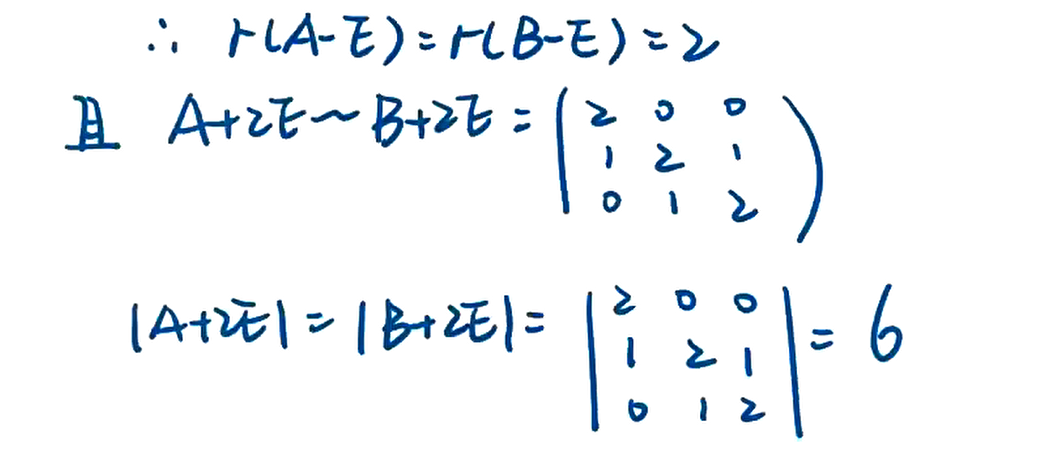 ∴ r(A-E)=r(B-E)=2
且 A+2E~B+2E=(2 0 0
1 2 1
0 1 2)
|A+2E|=|B+2E|=|2 0 0
1 2 1
0 1 2|=6